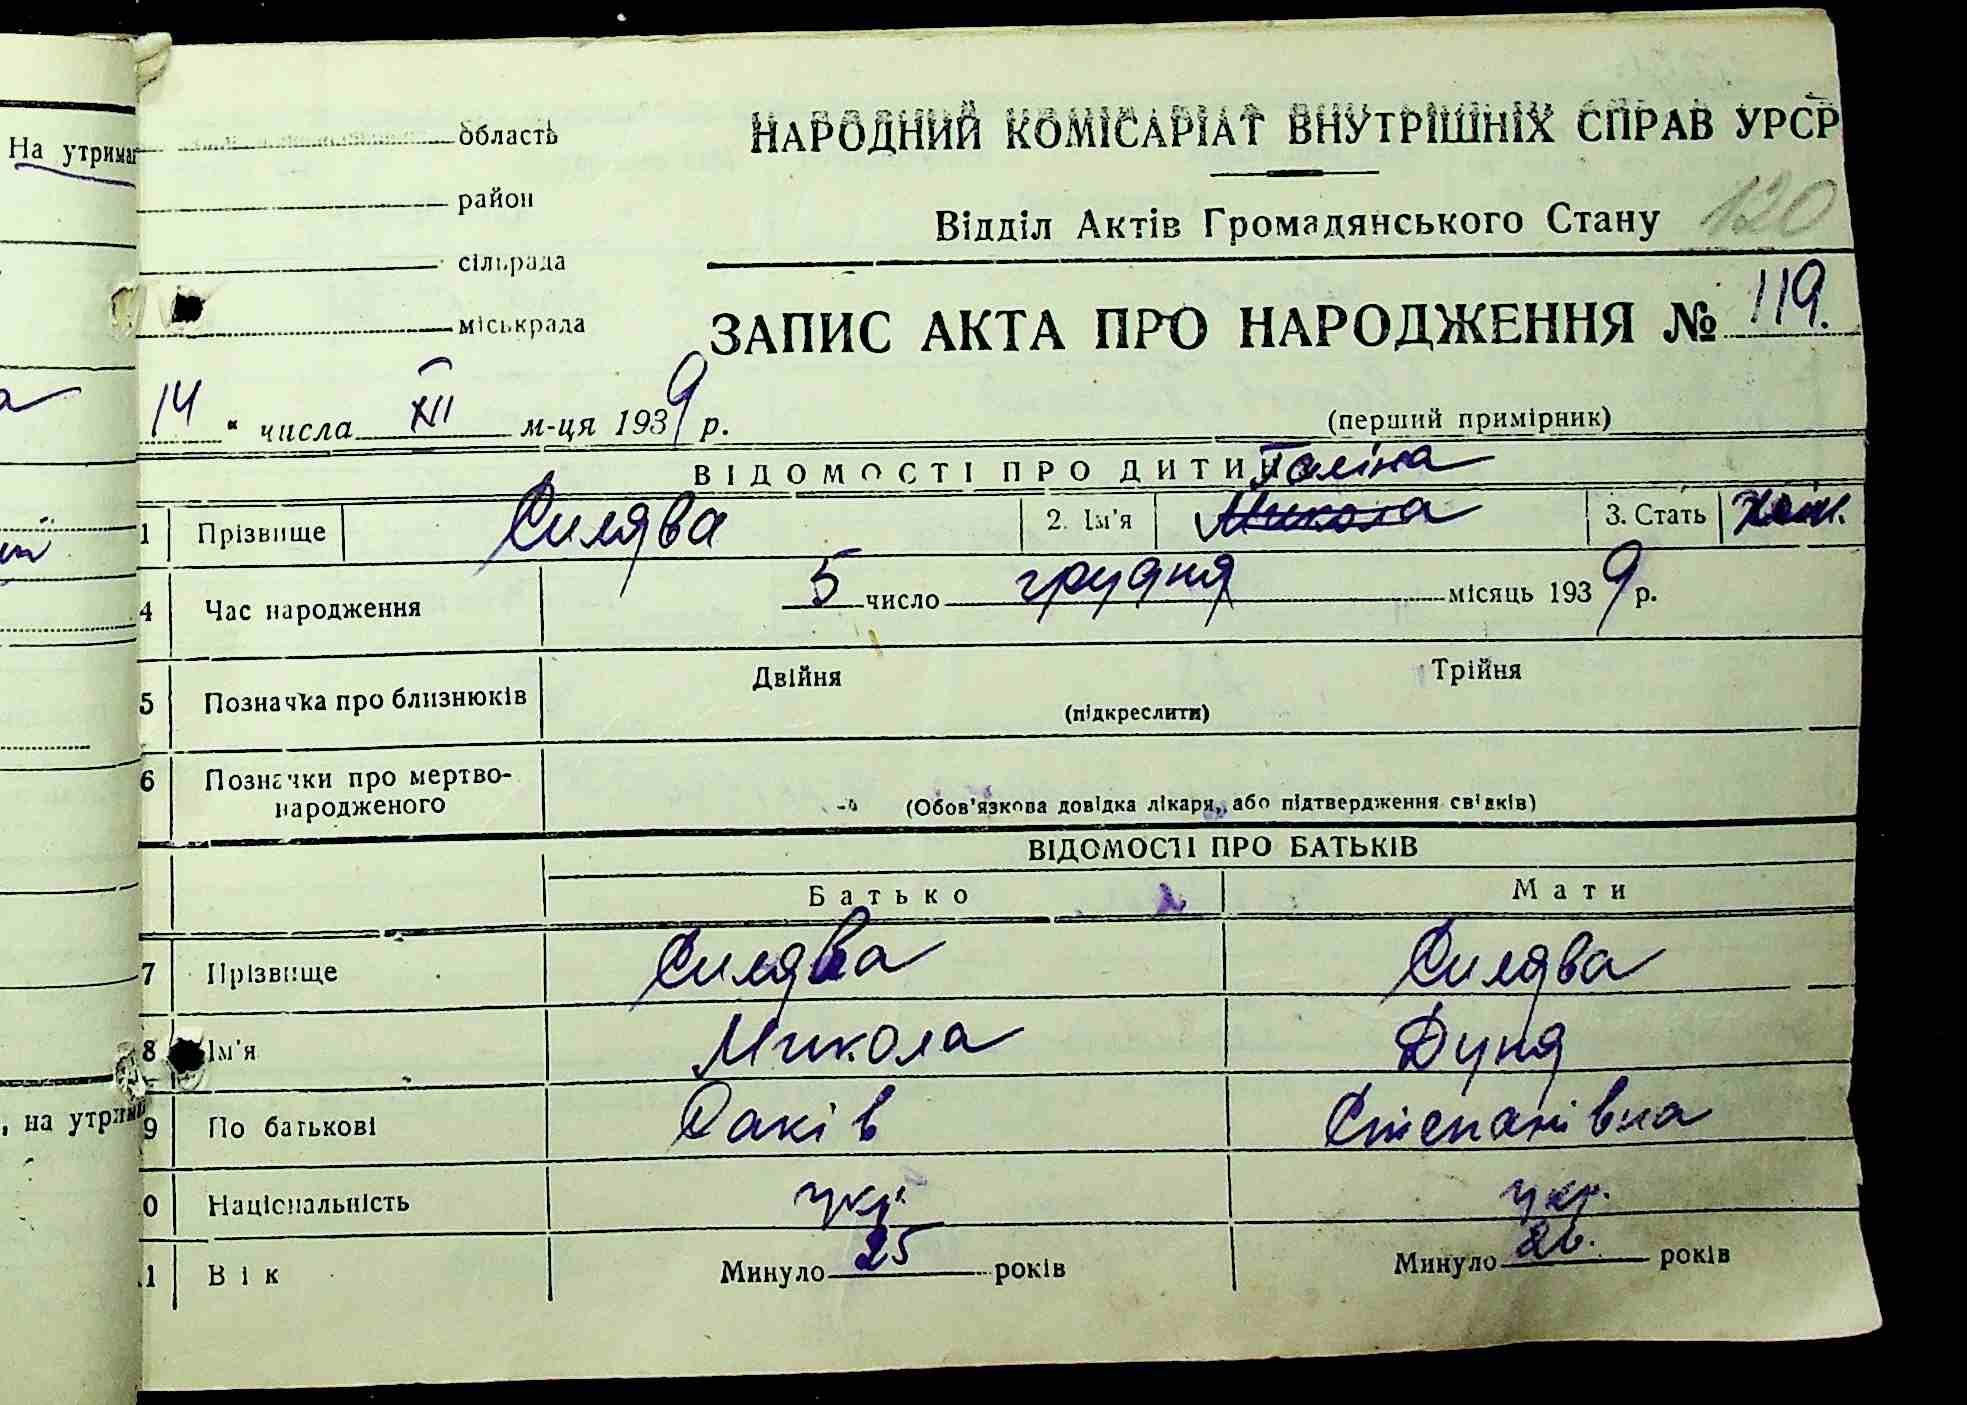 На утрима
, на утрим
область
район
сільрада
міськрада
НАРОДНИЙ КОМІСАРІАТ ВНУТРІШНІХ СПРАВ УРСР
Відділ Актів Громадянського Стану 120
ЗАПИС АКТА ПРО НАРОДЖЕННЯ № 119.
14 " числа XII м-ця 1939 р.
(перший примірник)
ВІДОМОСТІ ПРО ДИТИНУ
Галіна
1 Прізвище Силява 2. Ім'я Микола 3. Стать жін.
4 Час народження 5 число грудня місяць 1939 р.
5 Позначка про близнюків Двійня Трійня
(підкреслити)
6 Позначки про мертво-
народженого (Обов'язкова довідка лікаря, або підтвердження свідків)
ВІДОМОСТІ ПРО БАТЬКІВ
Батько Мати
7 Прізвище Силява Силява
8 Ім'я Микола Дуня
9 По батькові Яаків Степанівна
0 Національність укр. укр.
1 Вік Минуло 25 років Минуло 26. років